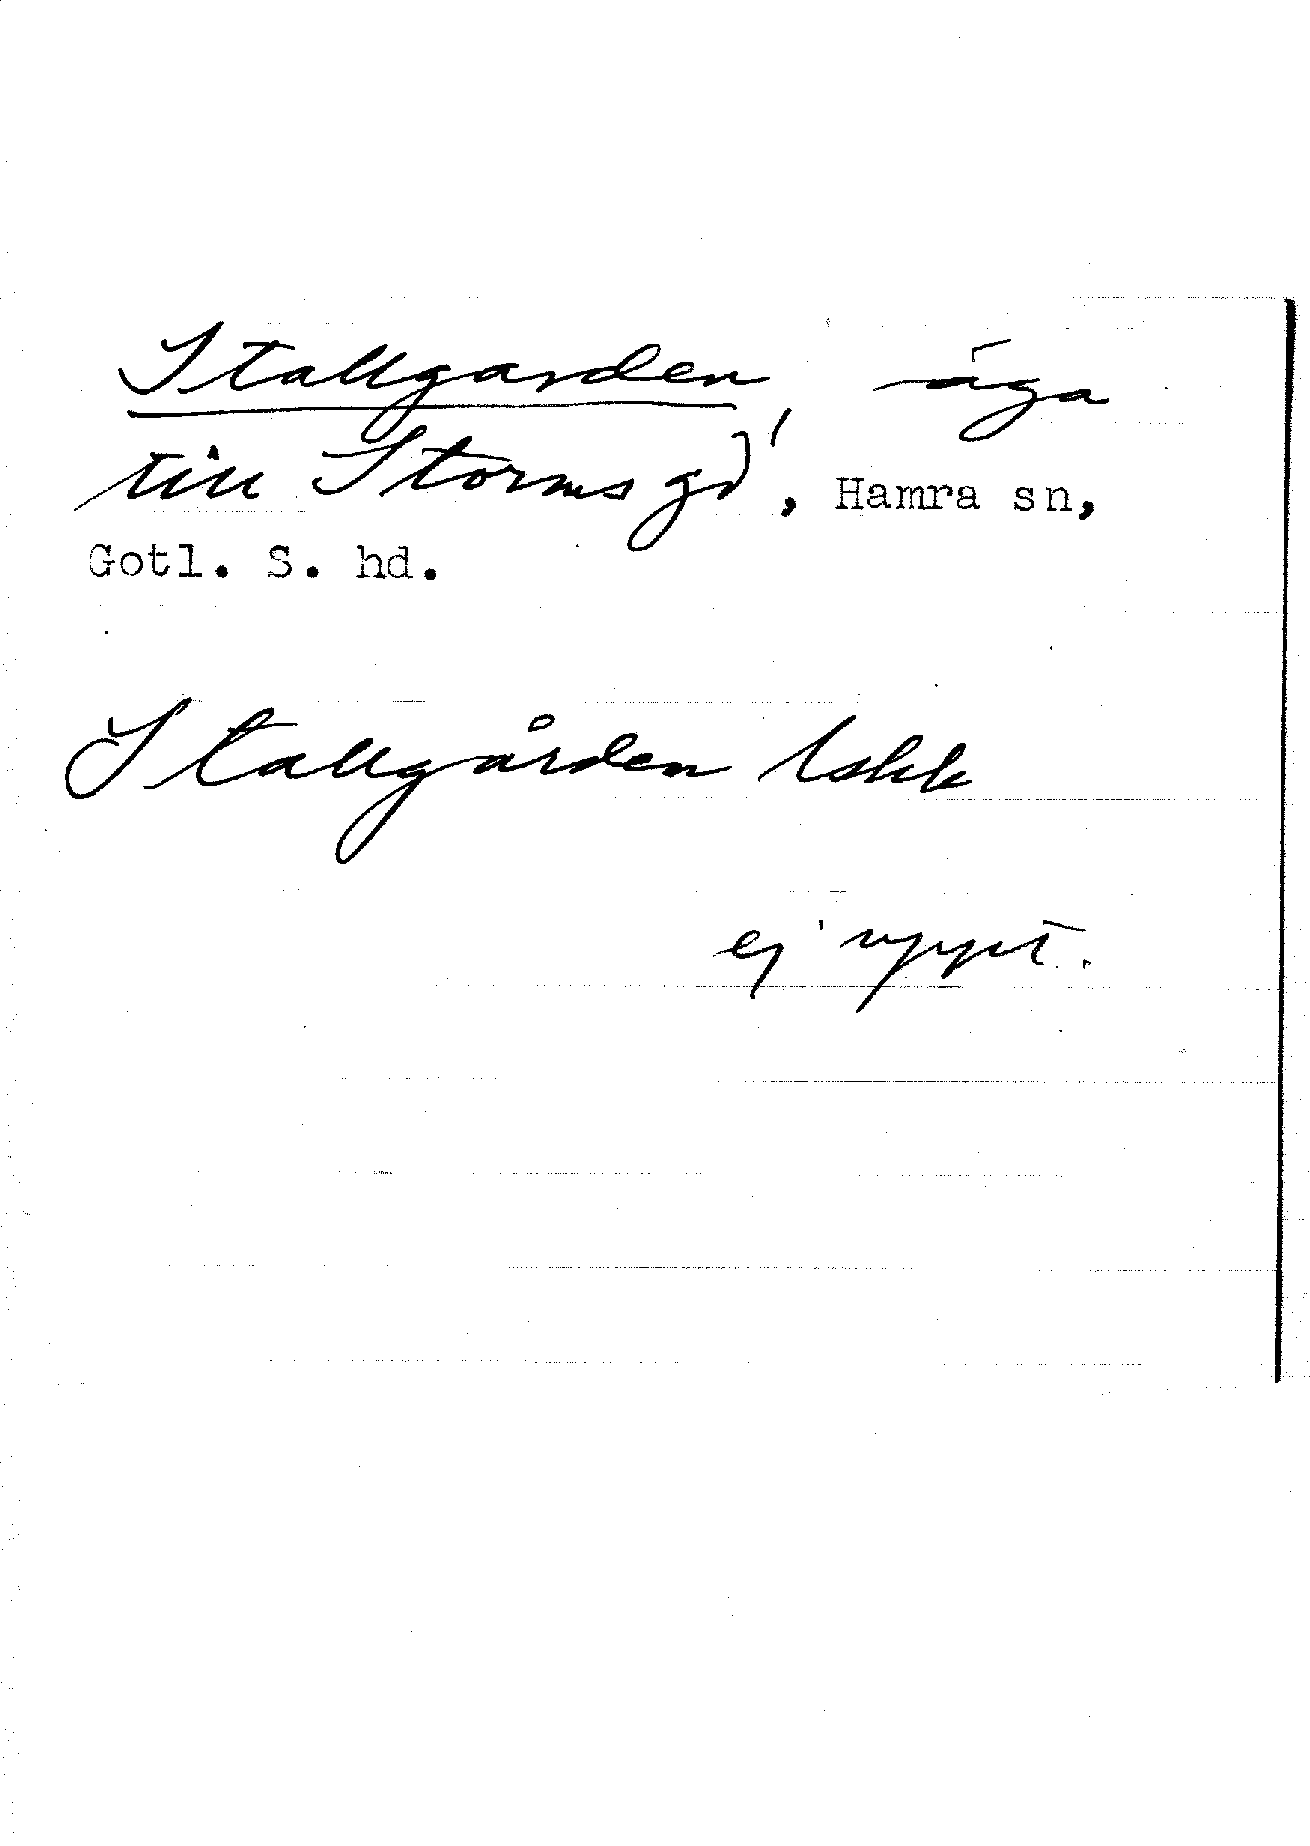 Stallgarden, äga
till Storms gd, Hamra sn,
Gotl. S. hd.
Stallgården Lskk
ej uppt.